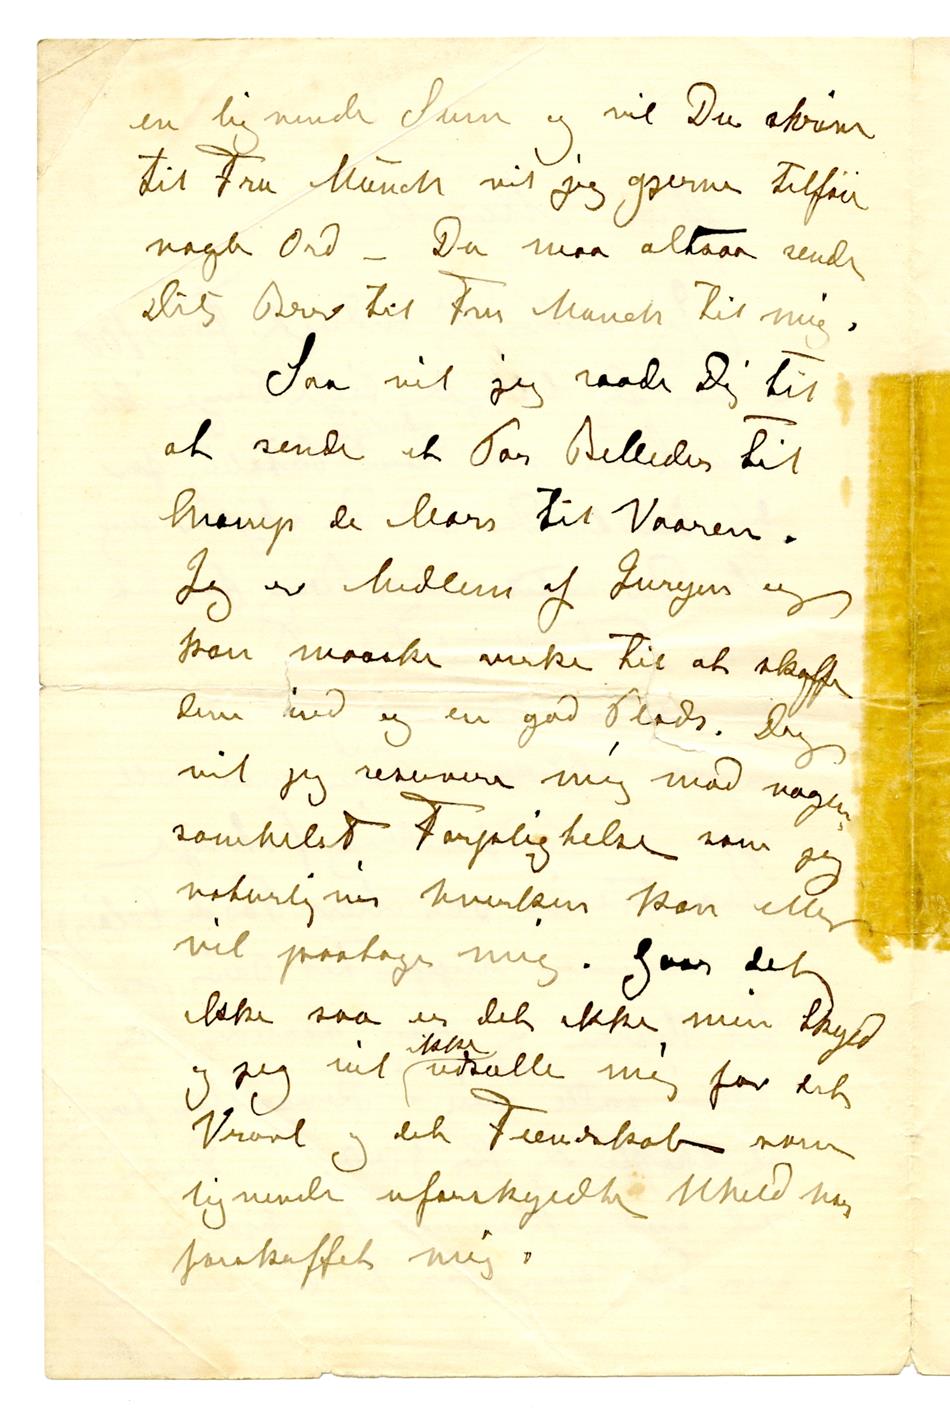 en lignende Sum og vil Du skrive
til Fru Munch vil jeg gjerne tilføie
nogle Ord – Du maa altsaa sende
Dit Brev til Fru Munch til mig.
Saa vil jeg raade Dig til
at sende et Par Billeder til
Champ de Mars til Vaaren.
Jeg er Medlem af Juryen og
kan maaske virke til at skaffe
dem ind og en god Plads. Dog
vil jeg reservere mig mod nogen-
somhelst Forpligtelse som jeg
naturligvis hverken kan eller
vil paatage mig. Gaar det
ikke saa er det ikke min Skyld
og jeg vil ikke udsætte mig for det
Vravl og det Fiendskab som
lignende uforskyldte Uheld har
forskaffet mig.